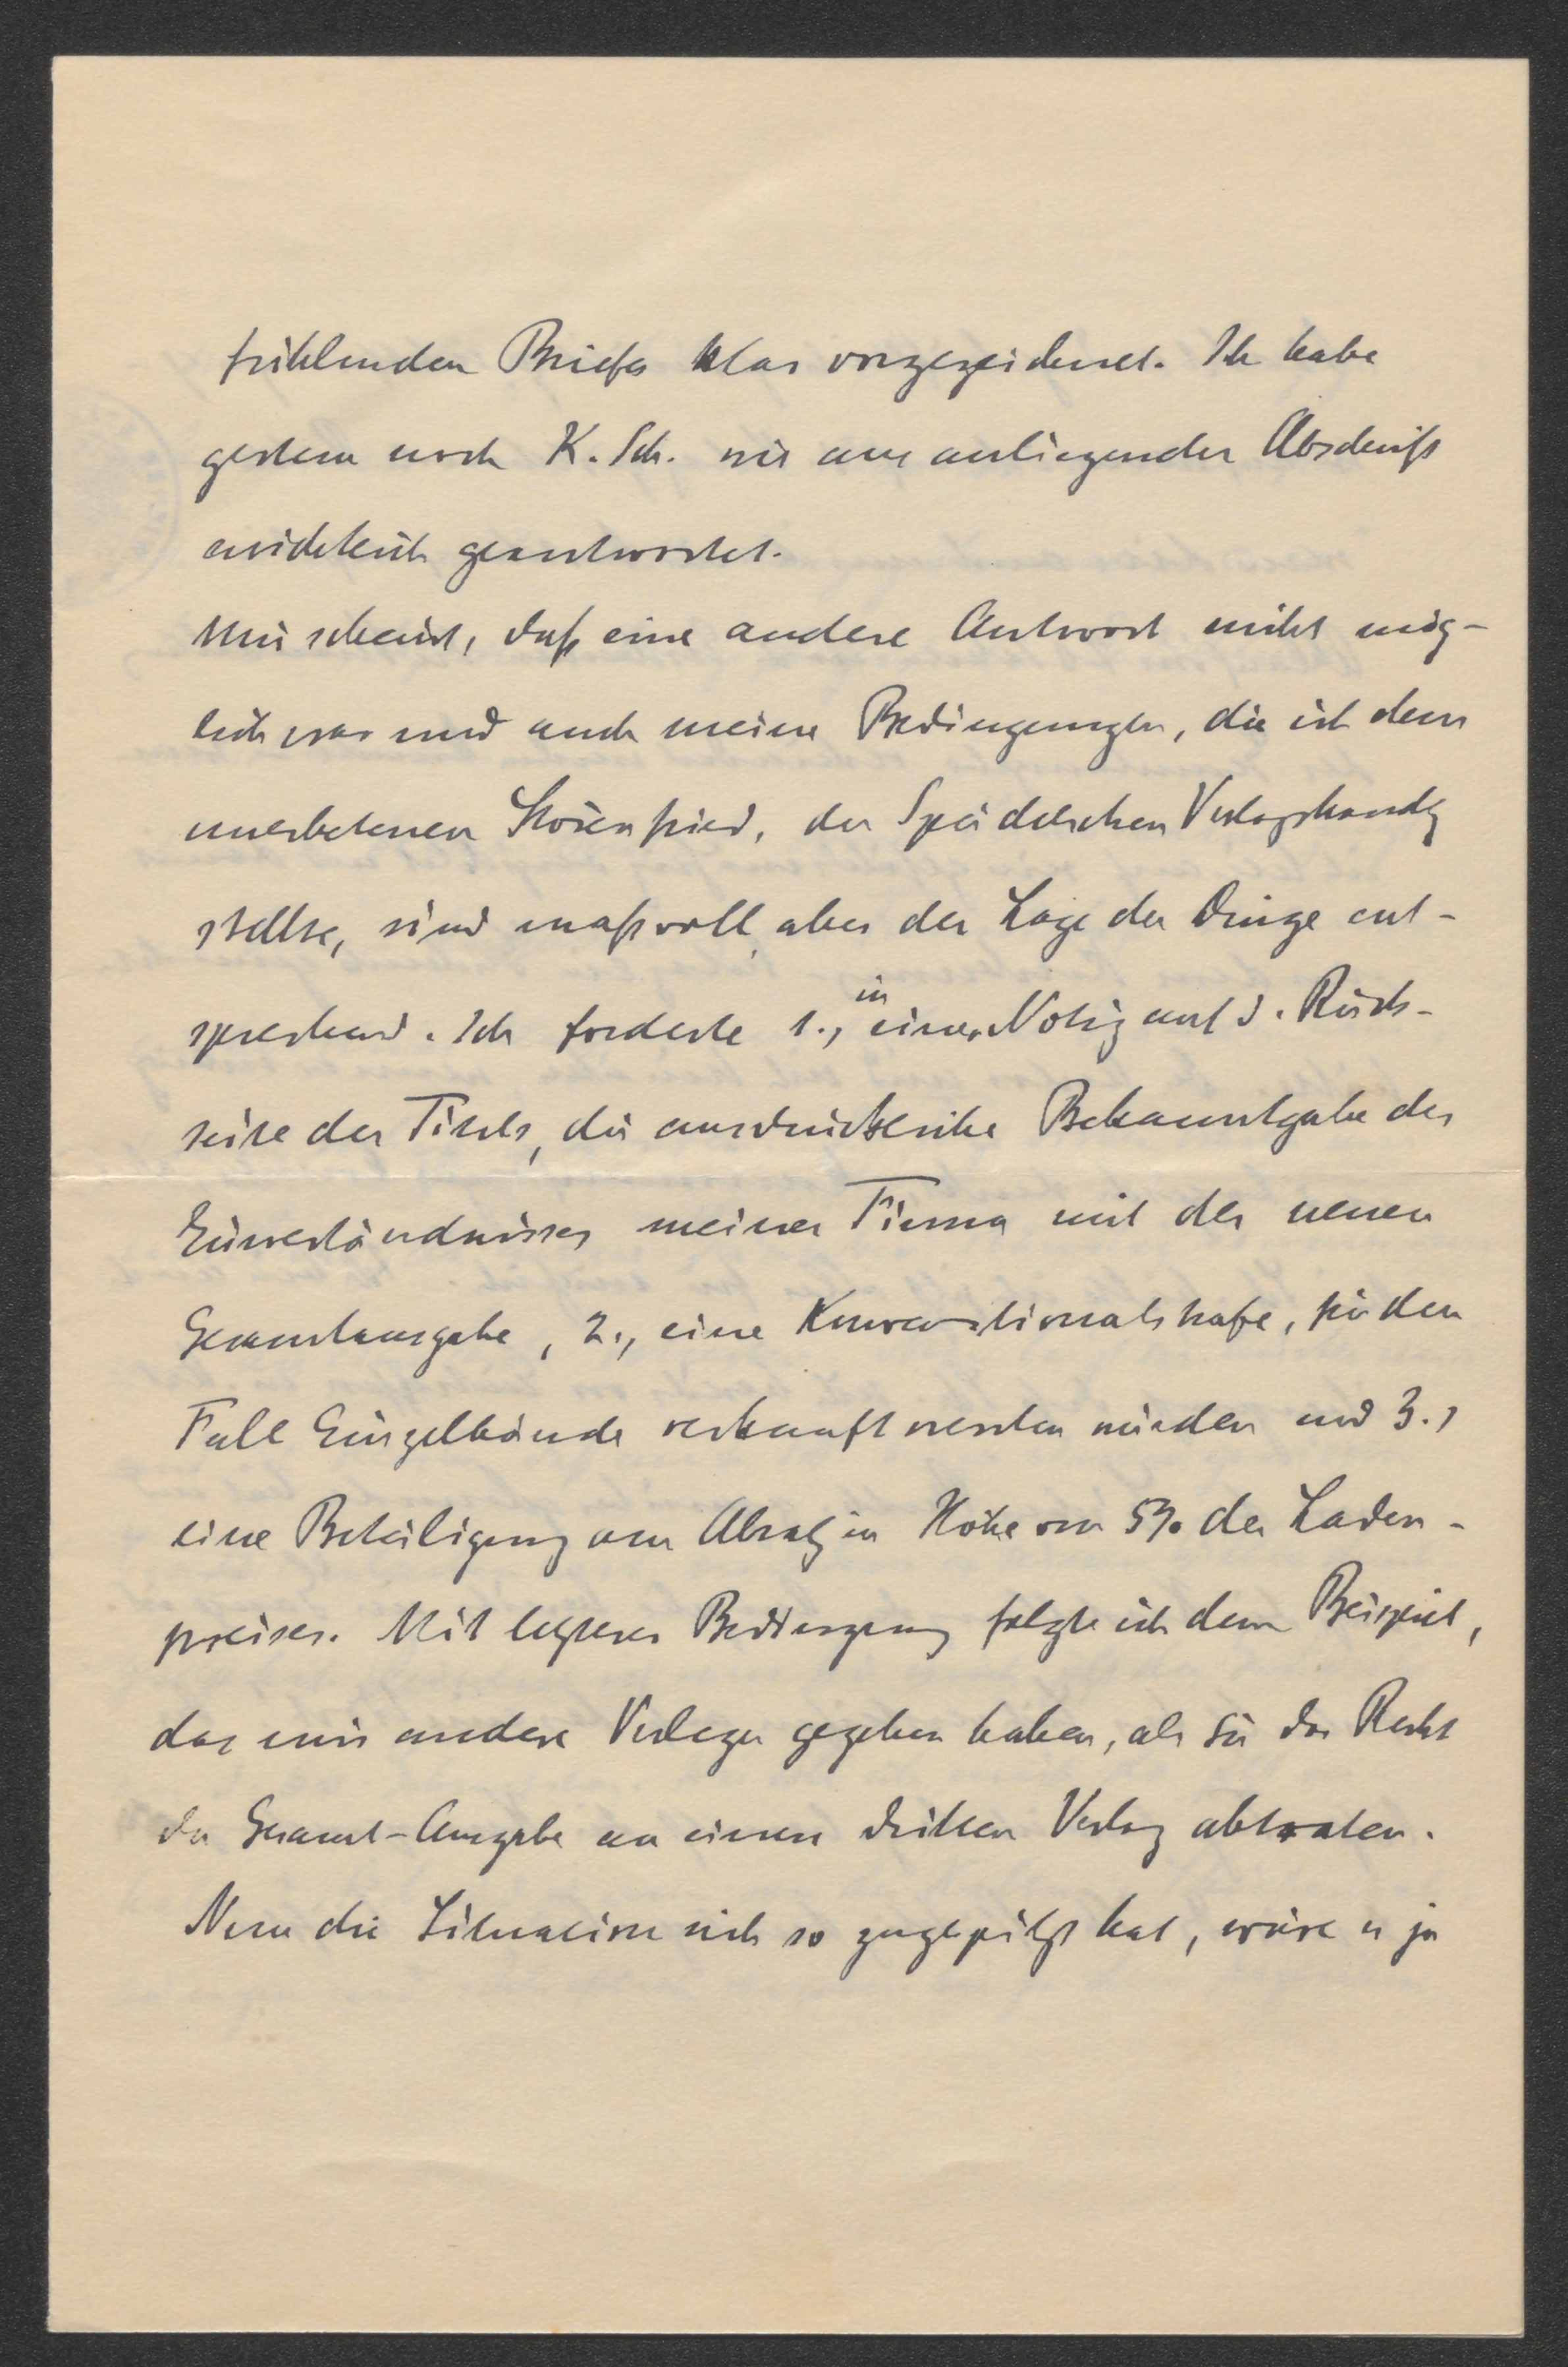 fühlenden Briefes klar vorgezeichnet. Ich habe
gestern noch K. Sch. wie aus anliegender Abschrift
ersichtlich geantwortet.
Mir scheint, daß eine andere Antwort nicht mög-
lich war und auch meine Bedingungen, die ich dem
unerbetenen Störenfried, der Speidelschen Verlagshandlg
stellte, sind maßvoll, aber der Lage der Dinge ent-
sprechend. Ich forderte 1., in einer Notiz auf d. Rück-
seite des Titels, die ausdrückliche Bekanntgabe des
Einverständnisses meiner Firma mit der neuen
Gesamtausgabe, 2., eine Konventionalstrafe, für den
Fall Einzelbände verkauft werden würden und 3.,
eine Beteiligung am Absatz in Höhe von 5% des Laden-
preises. Mit letzterer Bedingung folgte ich dem Beispiel,
das mir andere Verleger gegeben haben, als sie das Recht
der Gesamt-Ausgabe an einen dritten Verlag abtraten.
Nun die Situation sich so zugespitzt hat, wäre es ja